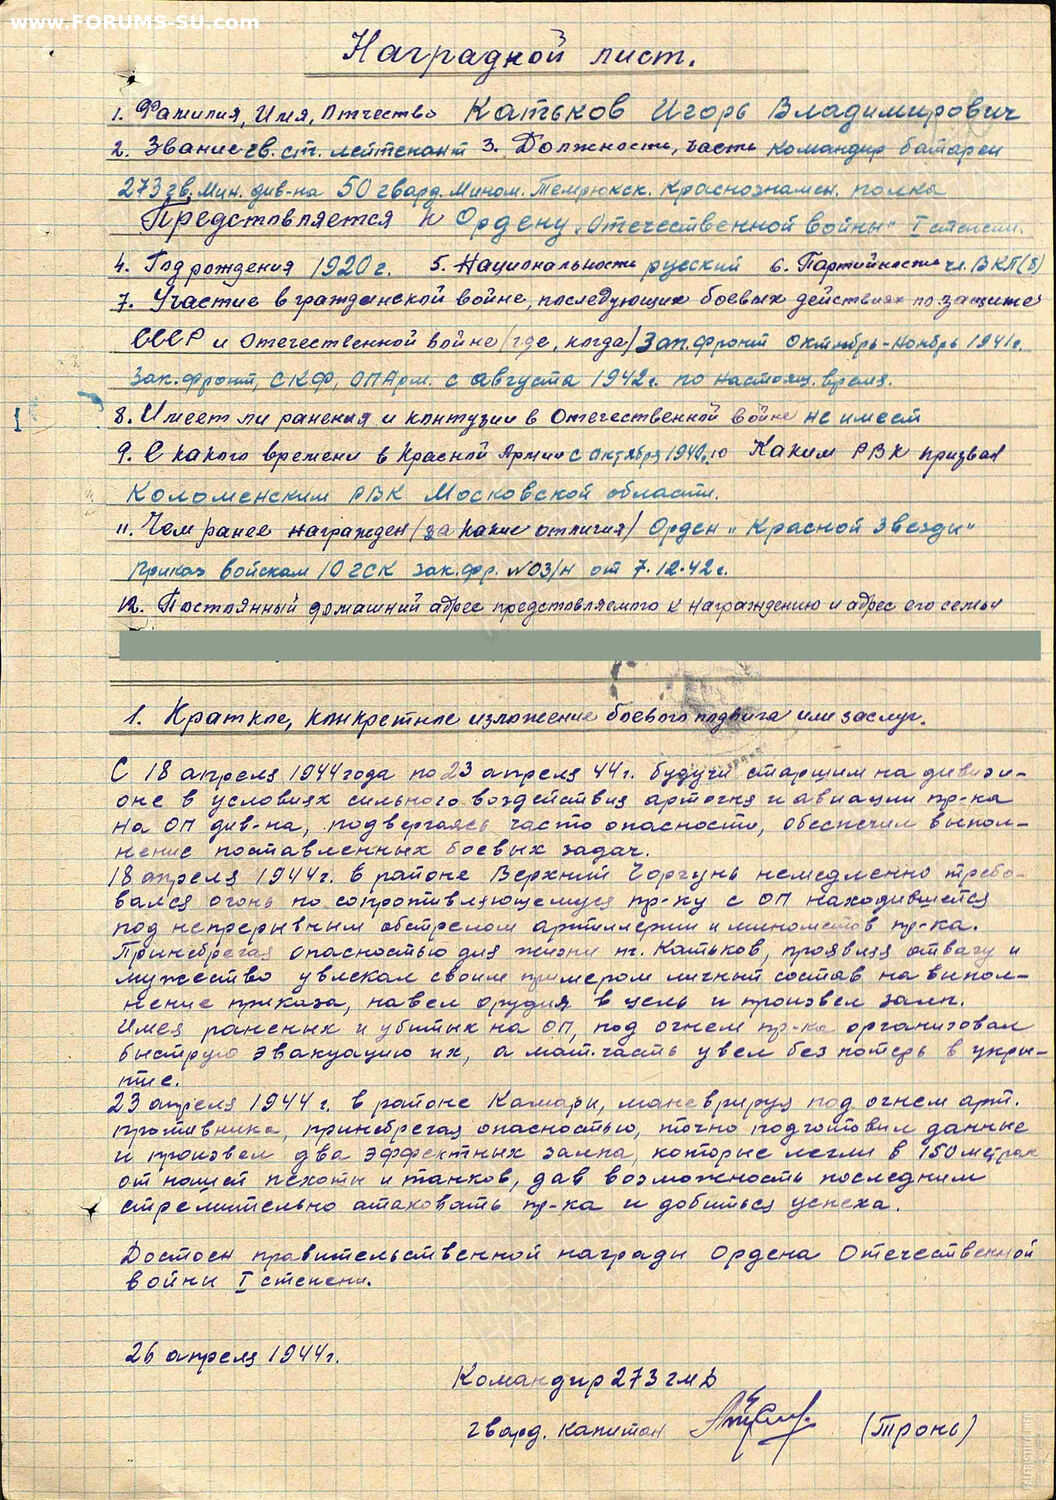 www.FORUMS-SU.com
Наградной лист.
1. Фамилия, Имя, Отчество Катьков Игорь Владимирович
2. Звание гв. ст. лейтенант 3. Должность, часть командир батареи
273 гв. мин. див-на 50 гвард. Мином. Темрюкск. Краснознамен. полка
Представляется к Ордену „Отечественной войны" I степени.
4. Год рождения 1920 г. 5. Национальность русский 6. Партийность чл. ВКП(б)
7. Участие в гражданской войне, последующих боевых действиях по защите
СССР и Отечественной войне (где, когда) Зап. фронт октябрь-ноябрь 1941г.
Зак. фронт, СКФ, ОПАрм. с августа 1942г. по настоящ. время.
8. Имеет ли ранения и контузии в Отечественной войне не имеет
9. С какого времени в Красной Армии с октября 1940г. 10 Каким РВК призван
Коломенским РВК Московской области.
11. Чем ранее награжден (за какие отличия) Орден „Красной Звезды"
Приказ войскам 10 ГСК Зак. фр. №03/н от 7.12.42г.
12. Постоянный домашний адрес представляемого к награждению и адрес его семьи
1. Краткое, конкретное изложение боевого подвига или заслуг.
С 18 апреля 1944 года по 23 апреля 44 г. будучи старшим на дивизи-
оне в условиях сильного воздействия артогня и авиации пр-ка
на ОП див-на, подвергаясь часто опасности, обеспечил выпол-
нение поставленных боевых задач.
18 апреля 1944г. в районе Верхний Чоргунь немедленно требо-
вался огонь по сопротивляющемуся пр-ку с ОП находившейся
под непрерывным обстрелом артиллерии и минометов пр-ка.
Принебрегая опасностью для жизни т. Катьков, проявляя отвагу и
мужество увлекал своим примером личный состав на выпол-
нение приказа, навел орудия в цель и произвел залп.
Имея раненых и убитых на ОП, под огнем пр-ка организовал
быструю эвакуацию их, а мат.часть увел без потерь в укры-
тие.
23 апреля 1944 г. в районе Камары, маневрируя под огнем арт.
противника, принебрегая опасностью, точно подготовил данные
и произвел два эффектных залпа, которые легли в 150 метрах
от нашей пехоты и танков, дав возможность последним
стремительно атаковать пр-ка и добиться успеха.
Достоен правительственной награды Ордена Отечественной
войны I степени.
26 апреля 1944г.
Командир 273 ГМД
гвард. капитан (Тронь)